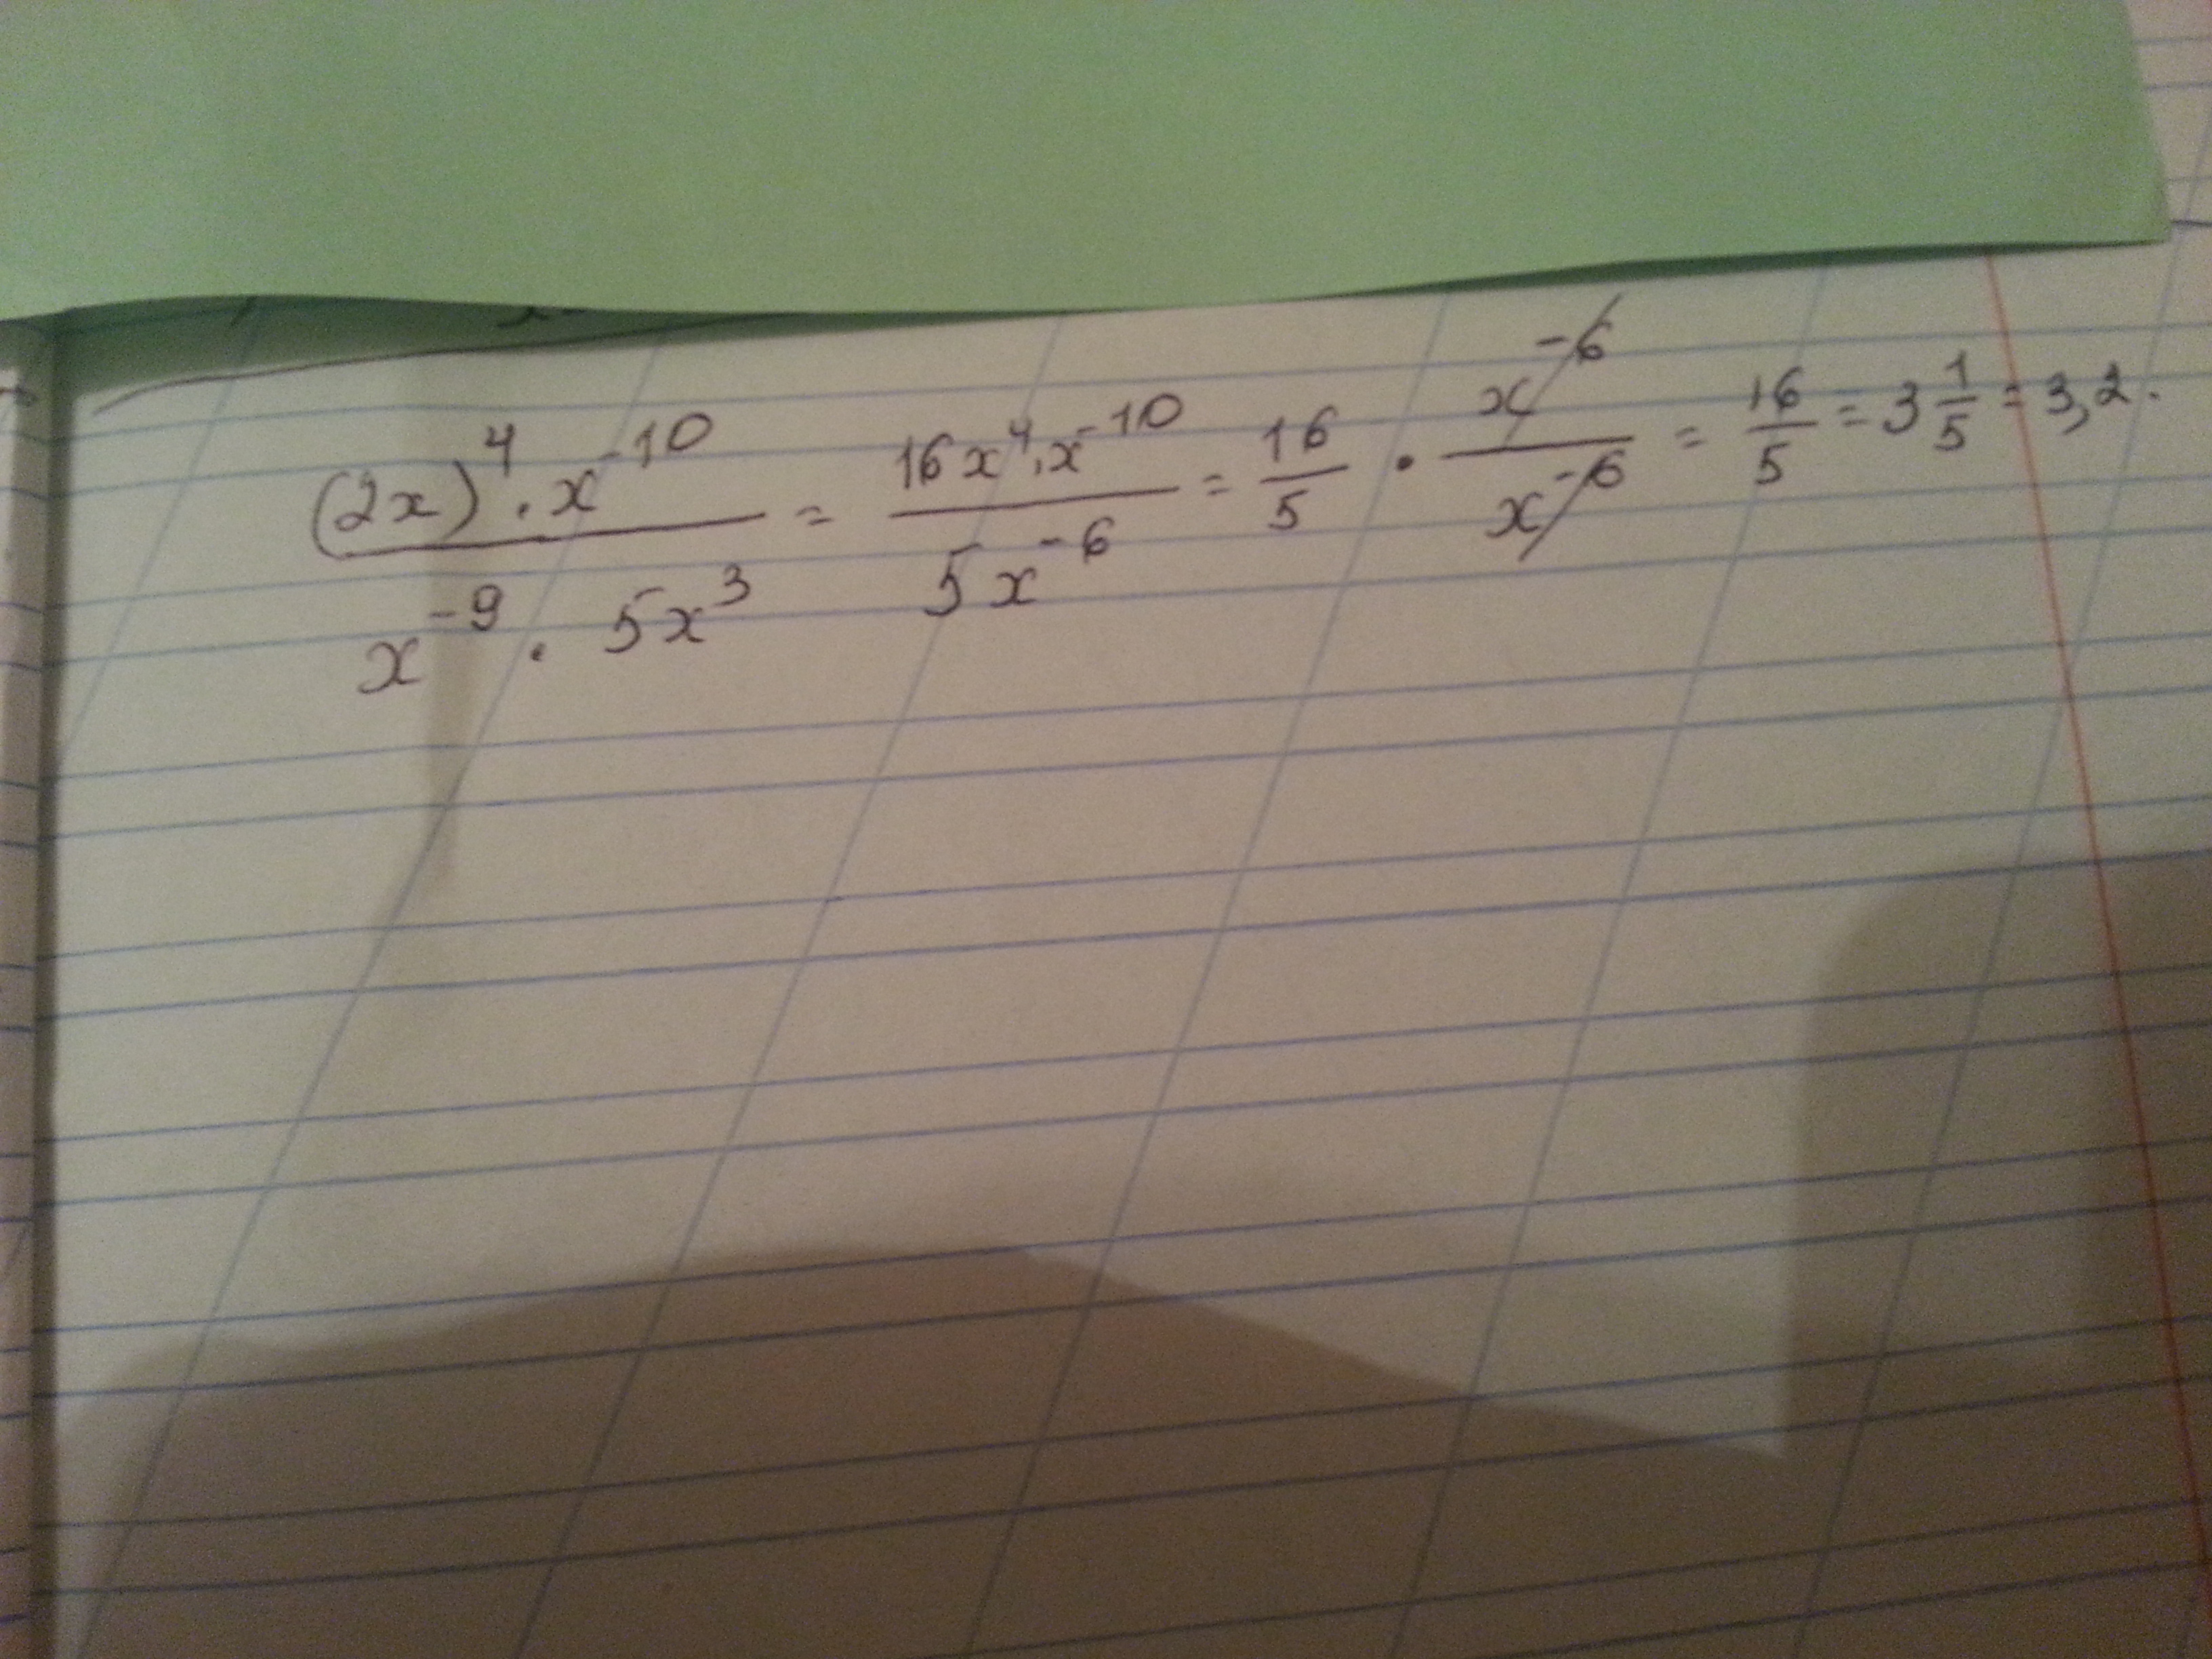 (2x)⁴ · x⁻¹⁰ / x⁻⁹ · 5x³ = 16x⁴ · x⁻¹⁰ / 5x⁻⁶ = 16/5 · x⁻⁶ / x⁻⁶ = 16/5 = 3 1/5 = 3,2.